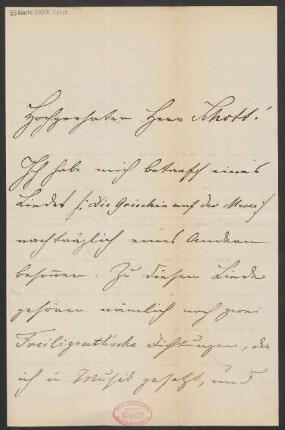 Hochgeehrter Herr Schott!
Ich habe mich betreffs eines
Liedes /: die Griechin auf der Messe :/
nachträglich eines Andern
besonnen. Zu diesem Liede
gehören nämlich noch zwei
Freiligrath'sche Dichtungen, die
ich in Musik gesetzt, und